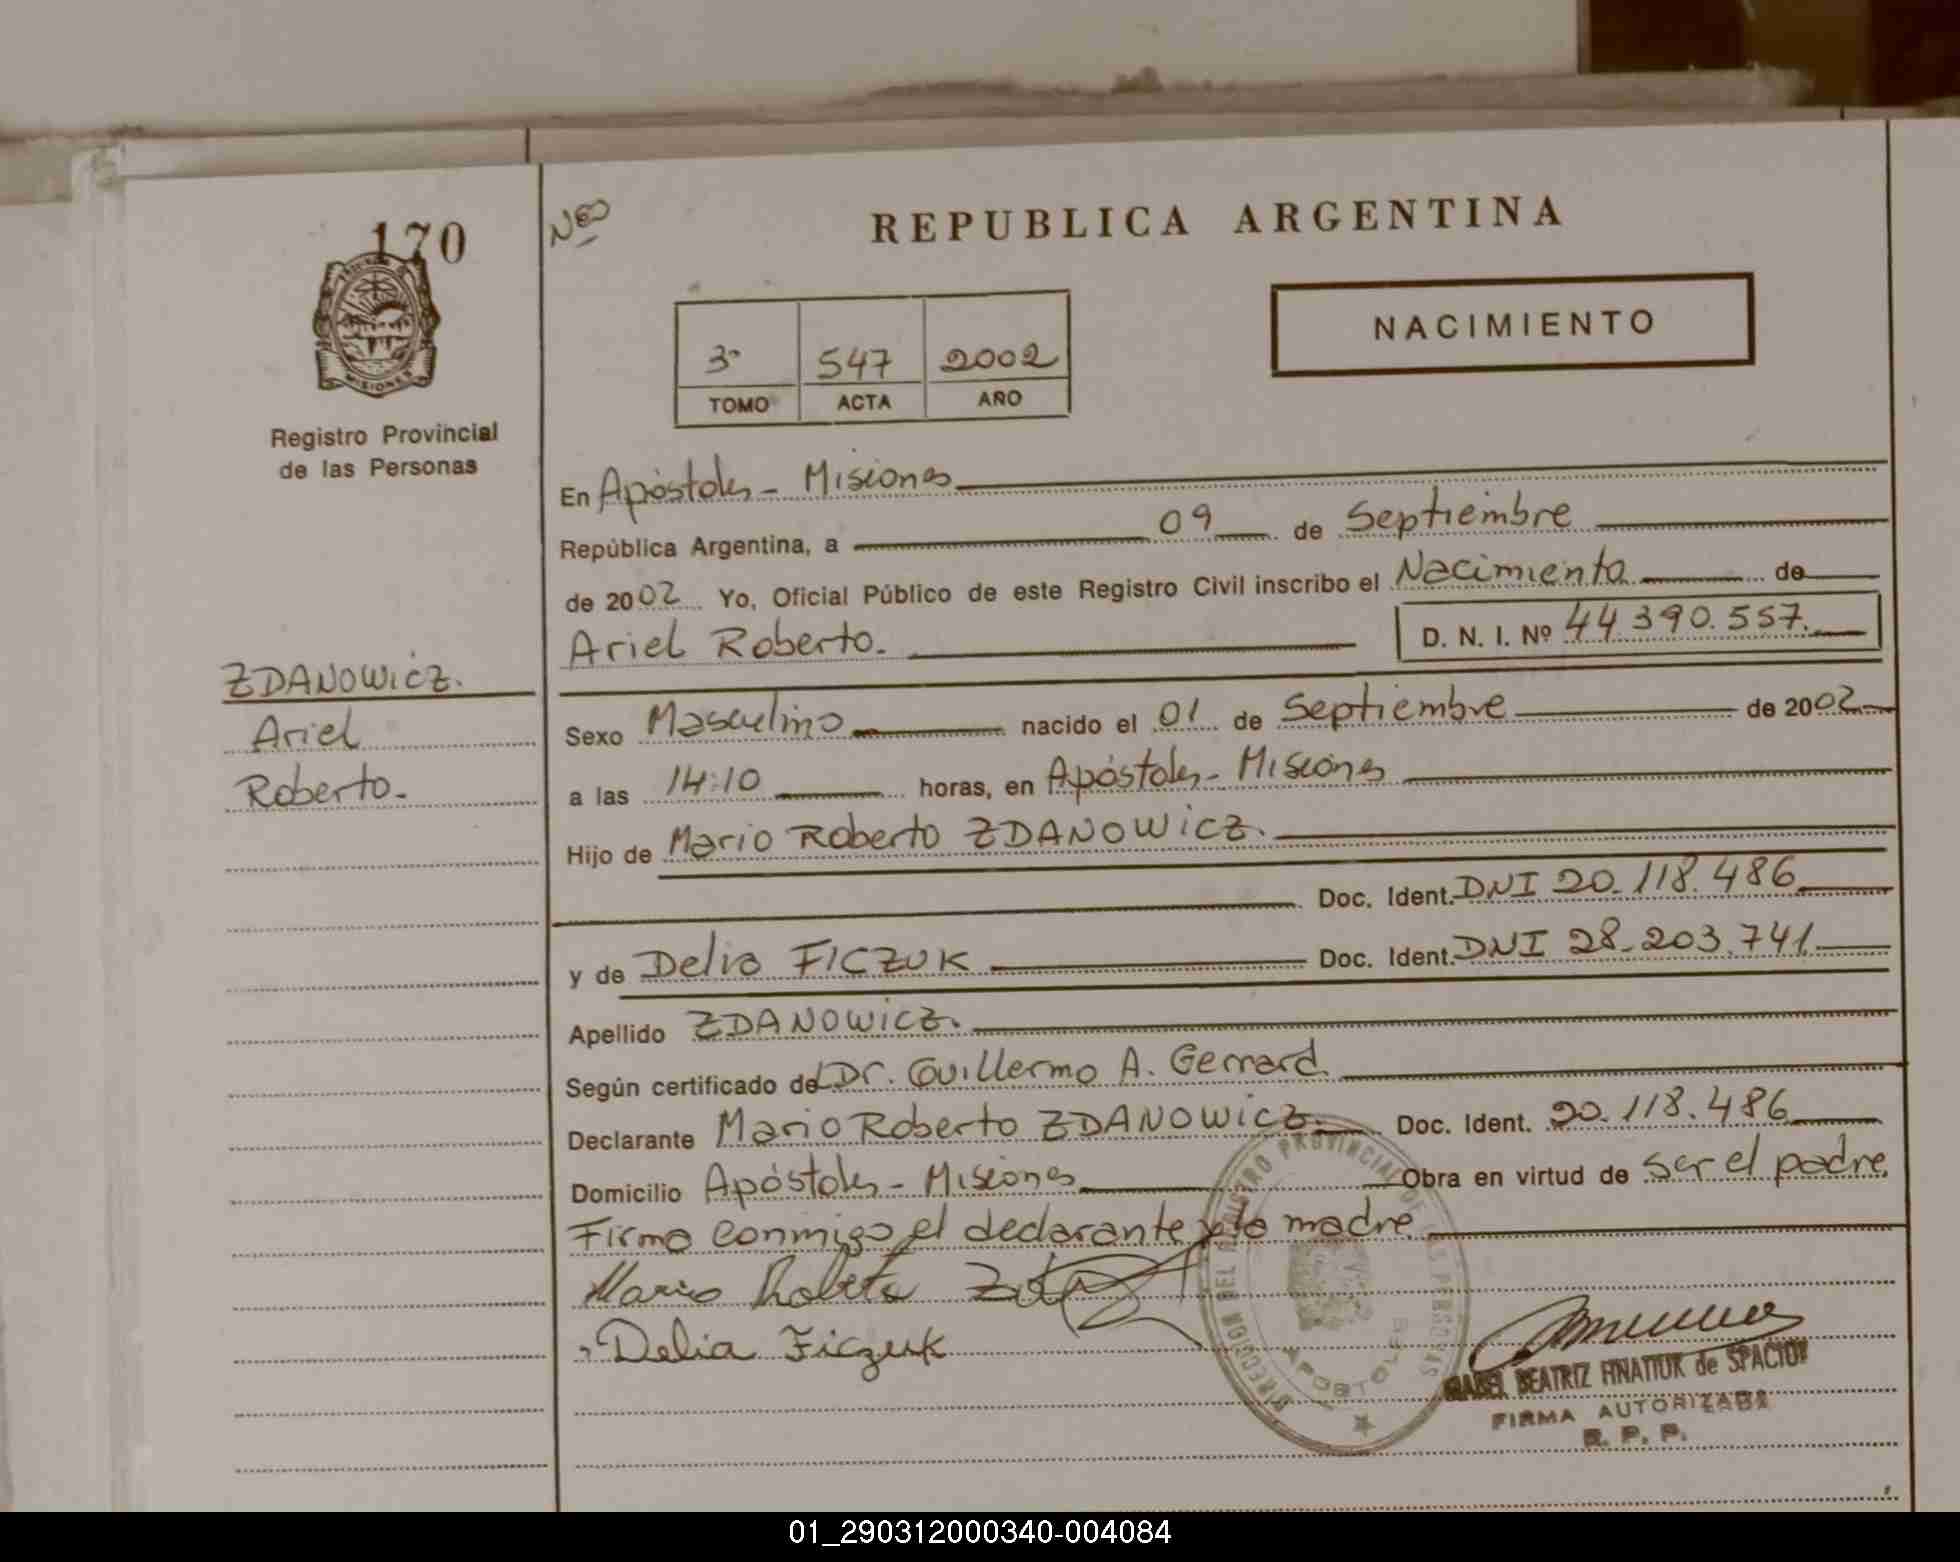 170
MISIONES
Registro Provincial
de las Personas
ZDANOWICZ.
Ariel
Roberto.
NEO
REPUBLICA ARGENTINA
NACIMIENTO
3º 547 2002
TOMO ACTA AÑO
En Apóstoles - Misiones
República Argentina, a 09 de Septiembre
de 2002 Yo, Oficial Público de este Registro Civil inscribo el Nacimiento de
Ariel Roberto. D. N. I. Nº 44.390.557.
Sexo Masculino nacido el 01 de Septiembre de 2002
a las 14:10 horas, en Apóstoles - Misiones
Hijo de Mario Roberto ZDANOWICZ.
Doc. Ident. DNI 20.118.486
y de Delia FICZUK Doc. Ident. DNI 28.203.741
Apellido ZDANOWICZ.
Según certificado del Dr. Guillermo A. Gerrard.
Declarante Mario Roberto ZDANOWICZ. Doc. Ident. 20.118.486
Domicilio Apóstoles - Misiones Obra en virtud de ser el padre.
Firma conmigo el declarante y la madre.
Mario Roberto
Delia Ficzuk
DIRECCION DEL REGISTRO PROVINCIAL DE LAS PERSONAS
APOSTOLES
BEATRIZ FINATIUK de SPACIUK
FIRMA AUTORIZADA
R. P. P.
01_290312000340-004084